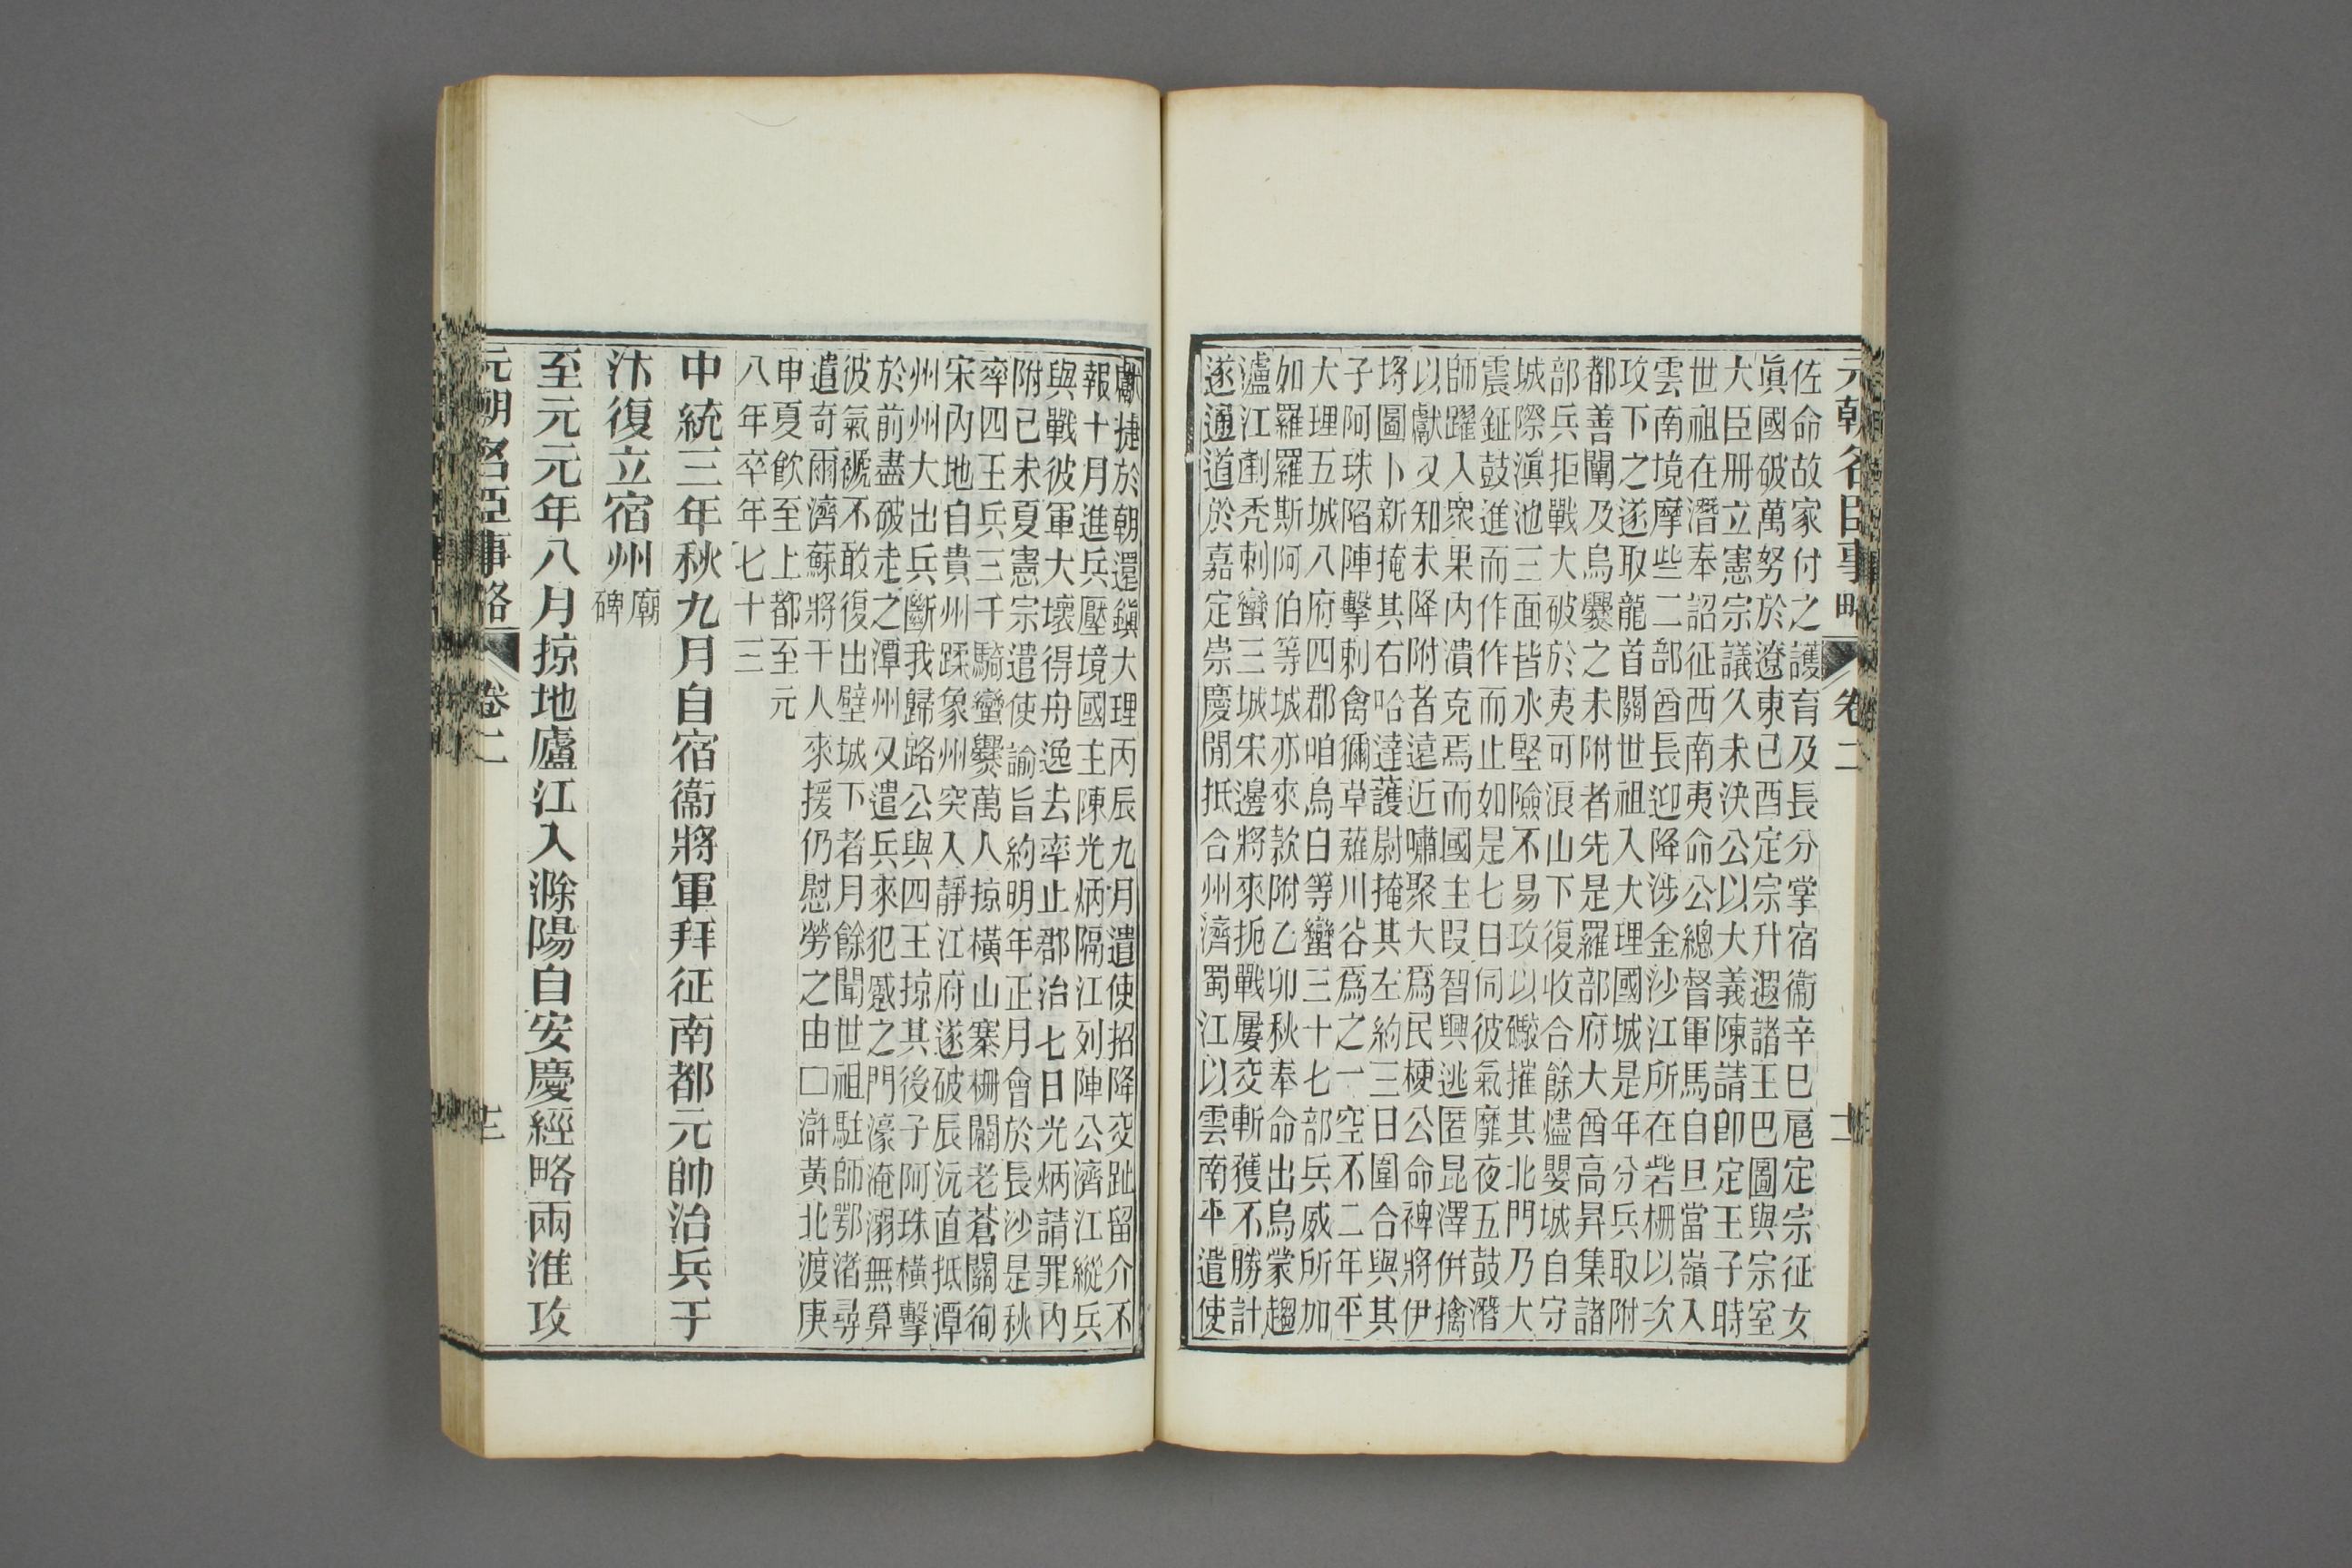 元朝名臣事略 卷二 十二
佐命故家付之護育及長分掌宿衞辛巳扈定宗征女
眞國破萬努於遼東已酉定宗升遐諸王巴圖與宗室
大臣册立憲宗議久未決公以大義陳請卽定王子時
世祖在潛奉詔征西南夷命公總督軍馬自旦當嶺入
雲南境摩些二部酋長迎降涉金沙江所在砦栅以次
攻下之遂取龍首關世祖入大理國城是年分兵取附
都善闡及烏爨之未附者先是羅部府大酋高昇集諸
部兵拒戰大破於夷可浪山下復收合餘燼嬰城自守
城際滇池三面皆水堅險不易攻以礮摧其北門乃大
震鉦鼓進而作作而止如是七日伺彼氣靡夜五鼓潛
師躍入衆果內潰克焉而國主段智興逃匿昆澤倂擒
以獻又知未降附者遠近嘯聚大爲民梗公命裨將伊
埓圖卜新掩其右哈達護尉掩其左約三日圍合與其
子阿珠陷陣擊刺禽獮草薙川谷爲之一空不二年平
大理五城八府四郡咱烏白等蠻三十七部兵威所加
如羅羅斯阿伯等城亦來款附乙卯秋奉命出烏蒙趨
瀘江剷禿刺蠻三城宋邊將來扼戰屢交斬獲不勝計
遂通道於嘉定崇慶閒抵合州濟蜀江以雲南平遣使
獻捷於朝還鎮大理丙辰九月遣使招降交趾留介不
報十月進兵壓境國主陳光炳隔江列陣公濟江縱兵
與戰彼軍大壞得舟逸去率止郡治七日光炳請罪內
附已未夏憲宗遣使諭旨約明年正月會於長沙是秋
率四王兵三千騎蠻爨萬人掠橫山寨栅闢老蒼關徇
宋內地自貴州蹂象州突入靜江府遂破辰沅直抵潭
州州大出兵斷我歸路公與四王掠其後子阿珠橫擊
於前盡破走之潭州又遣兵來犯蹙之門濠淹溺無算
彼氣褫不敢復出壁城下者月餘聞世祖駐師鄂渚尋
遣奇爾濟蘇將千人來援仍慰勞之由□滸黃北渡庚
申夏飮至上都至元
八年卒年七十三
中統三年秋九月自宿衞將軍拜征南都元帥治兵于
汴復立宿州廟碑
至元元年八月掠地廬江入滁陽自安慶經略兩淮攻
元朝名臣事略 卷二 十三